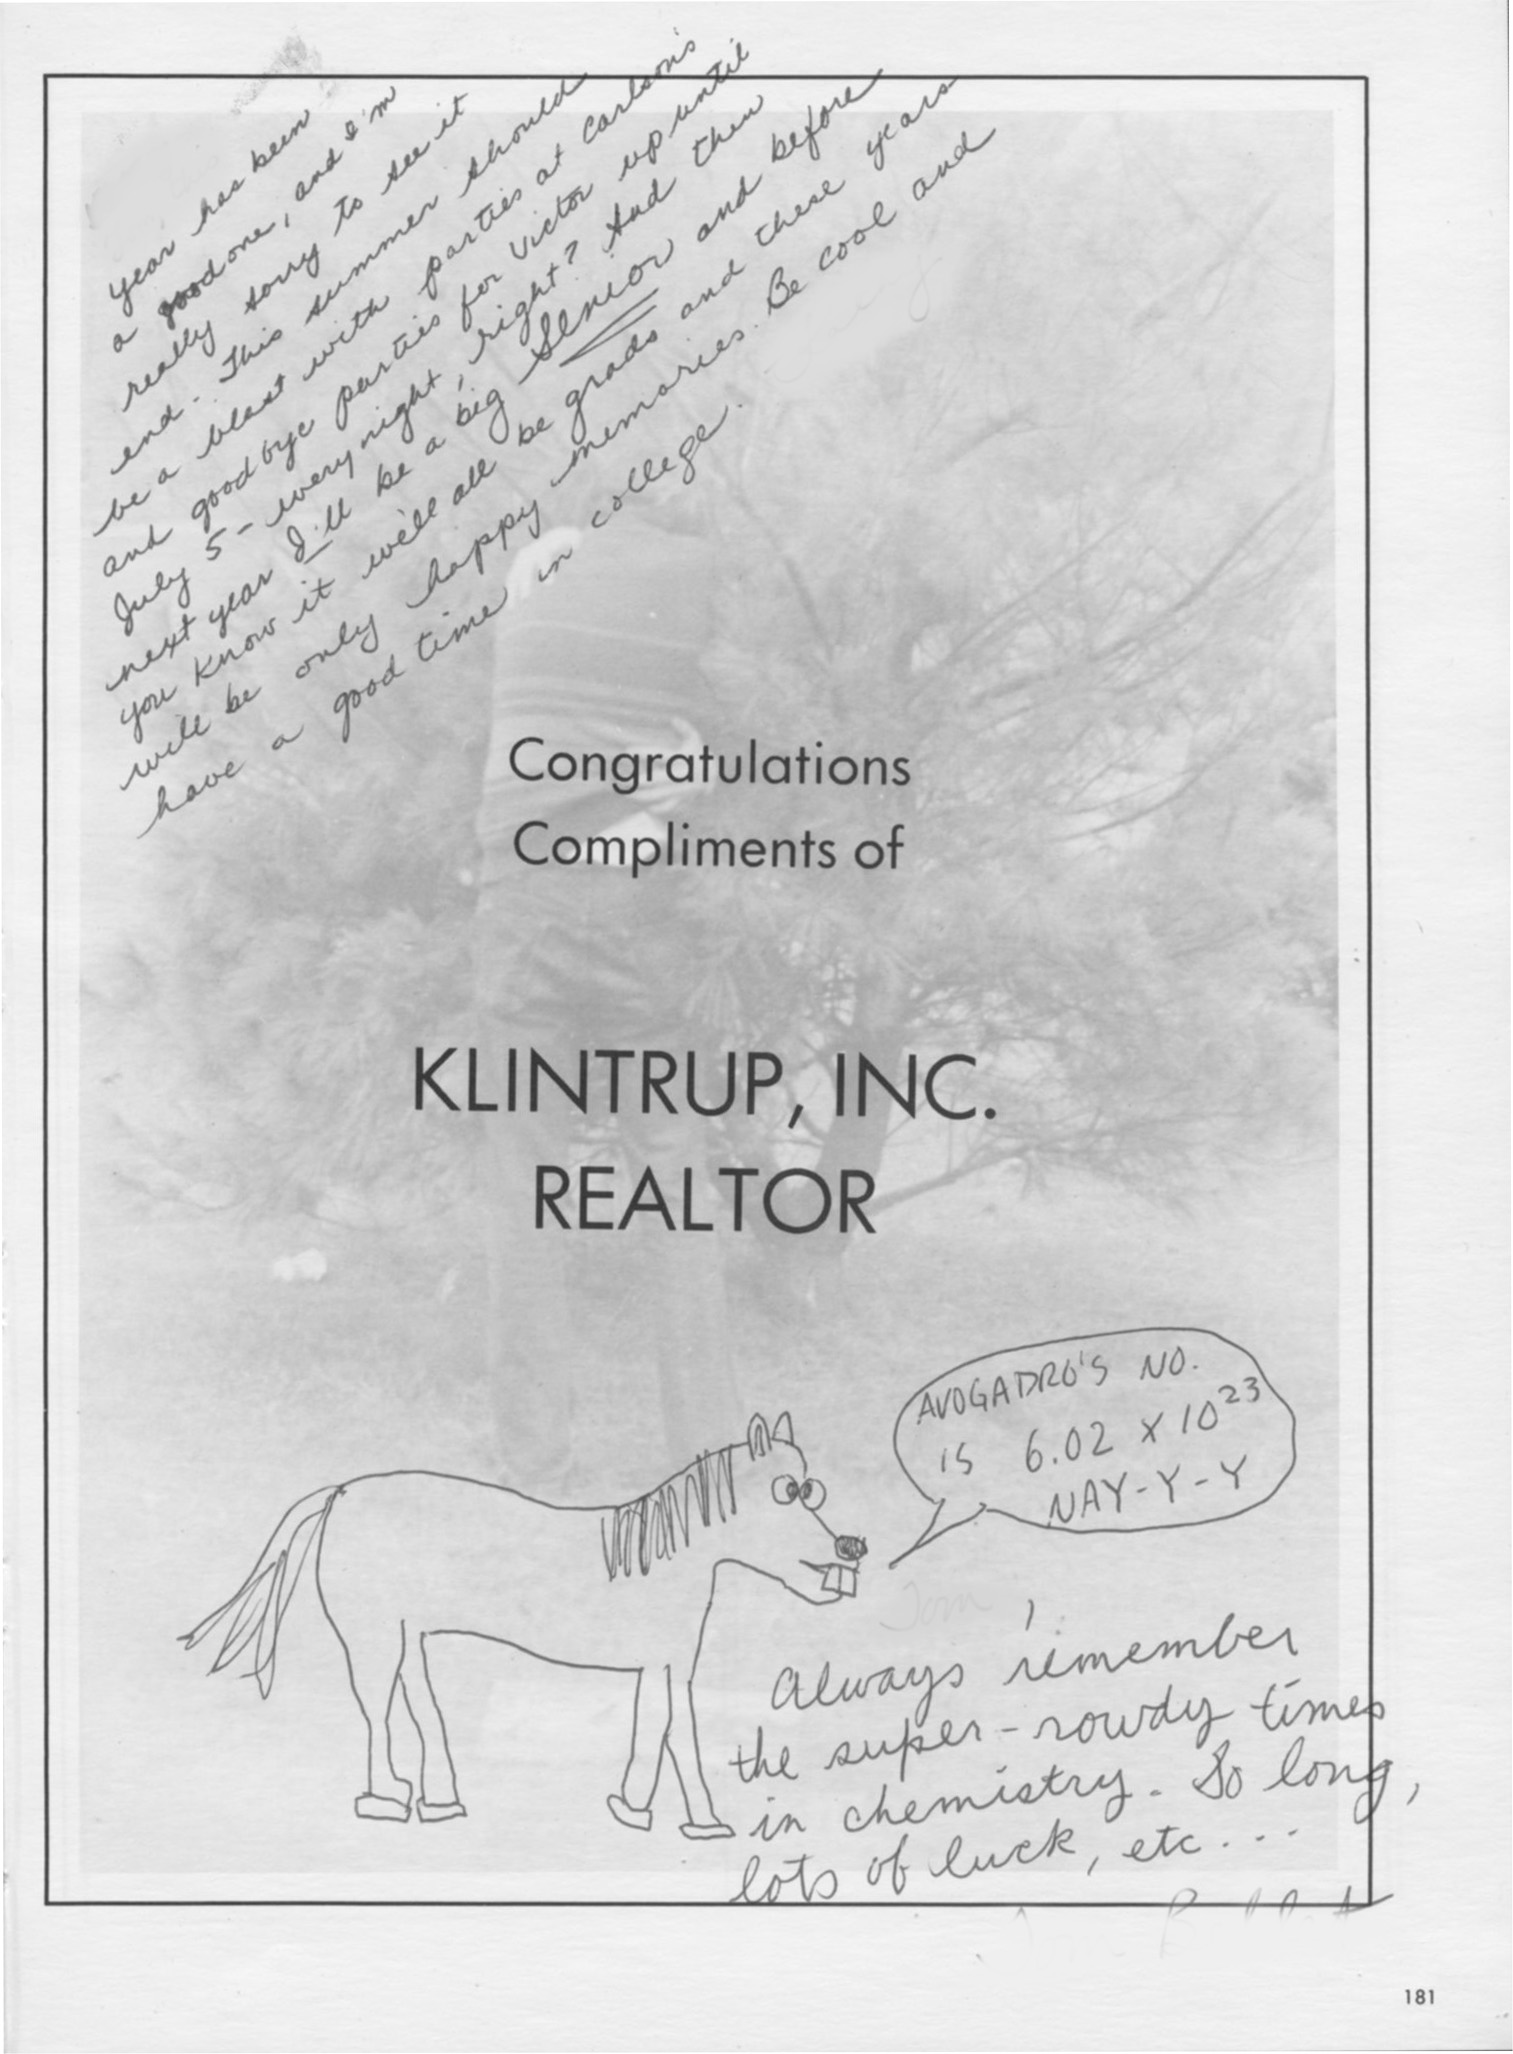 year has been
a good one, and I'm
really sorry to see it
end. This summer should
be a blast with parties at Carlson's
and goodbye parties for Victor up until
July 5 - every night, right? And then
next year I'll be a big Senior and before
you know it we'll all be grads and these years
will be only happy memories. Be cool and
have a good time in college.
Congratulations
Compliments of
KLINTRUP, INC.
REALTOR
AVOGADRO'S NO.
IS 6.02 X 10²³
NAY-Y-Y
Tom,
Always remember
the super-rowdy times
in chemistry. So long,
lots of luck, etc...
181